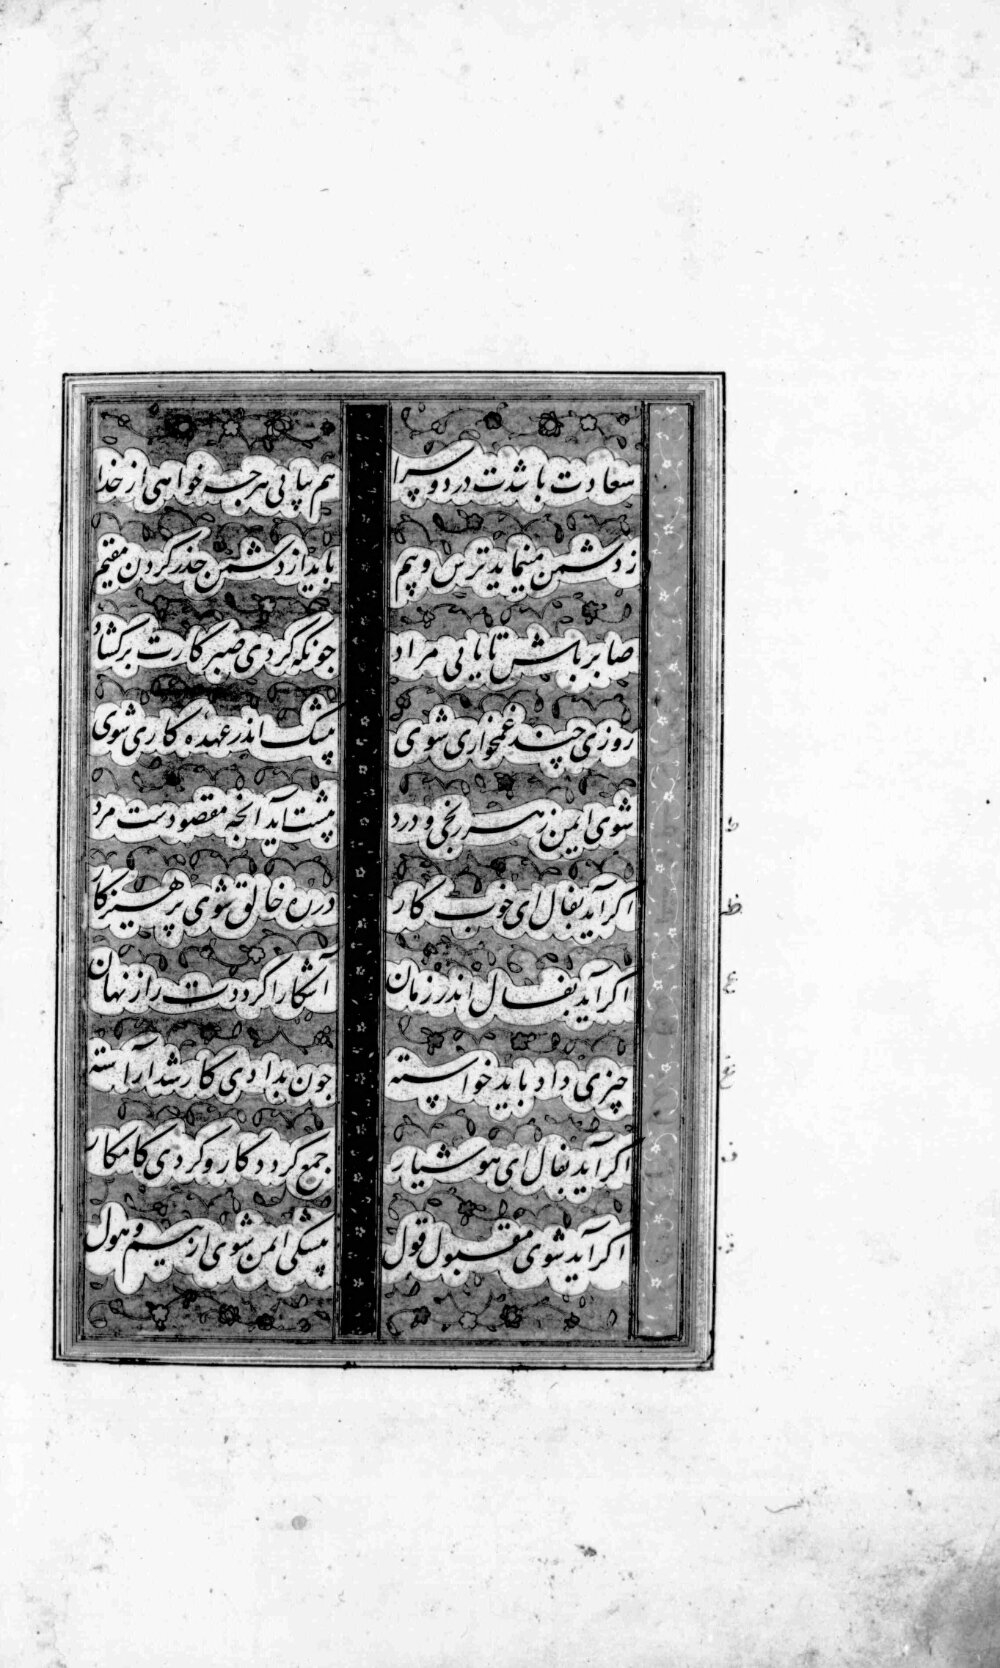 سعادت باشدت در دو سرا هم بیابی هرجه خواهی از خدا
ز دشمن مینماید ترس و بیم باید از دشمن حذر کردن مقیم
صابر باش تا یابی مراد جونکه کردی صبر کارت برکشاد
روزی چند غمخواری شوی بیشک اندر عهده کاری شوی
ط
شوی ایمن ز هر رنجی و درد بیشت آید آنجه مقصودست مرد
ظ
اکر آید بفال ای خوب کار در ره خالق شوی برهیزکار
ع
اکر آید بفال اندر زمان آشکارا کرددت راز نهان
غ
چیزی داد باید خواسته جون بدادی کار شد آراسته
ف
اکر آید بفال ای هوشیار جمع کردد کار و کردی کامکار
ق
اکر آید شوی مقبول قول بیشکی ایمن شوی از بیم و هول